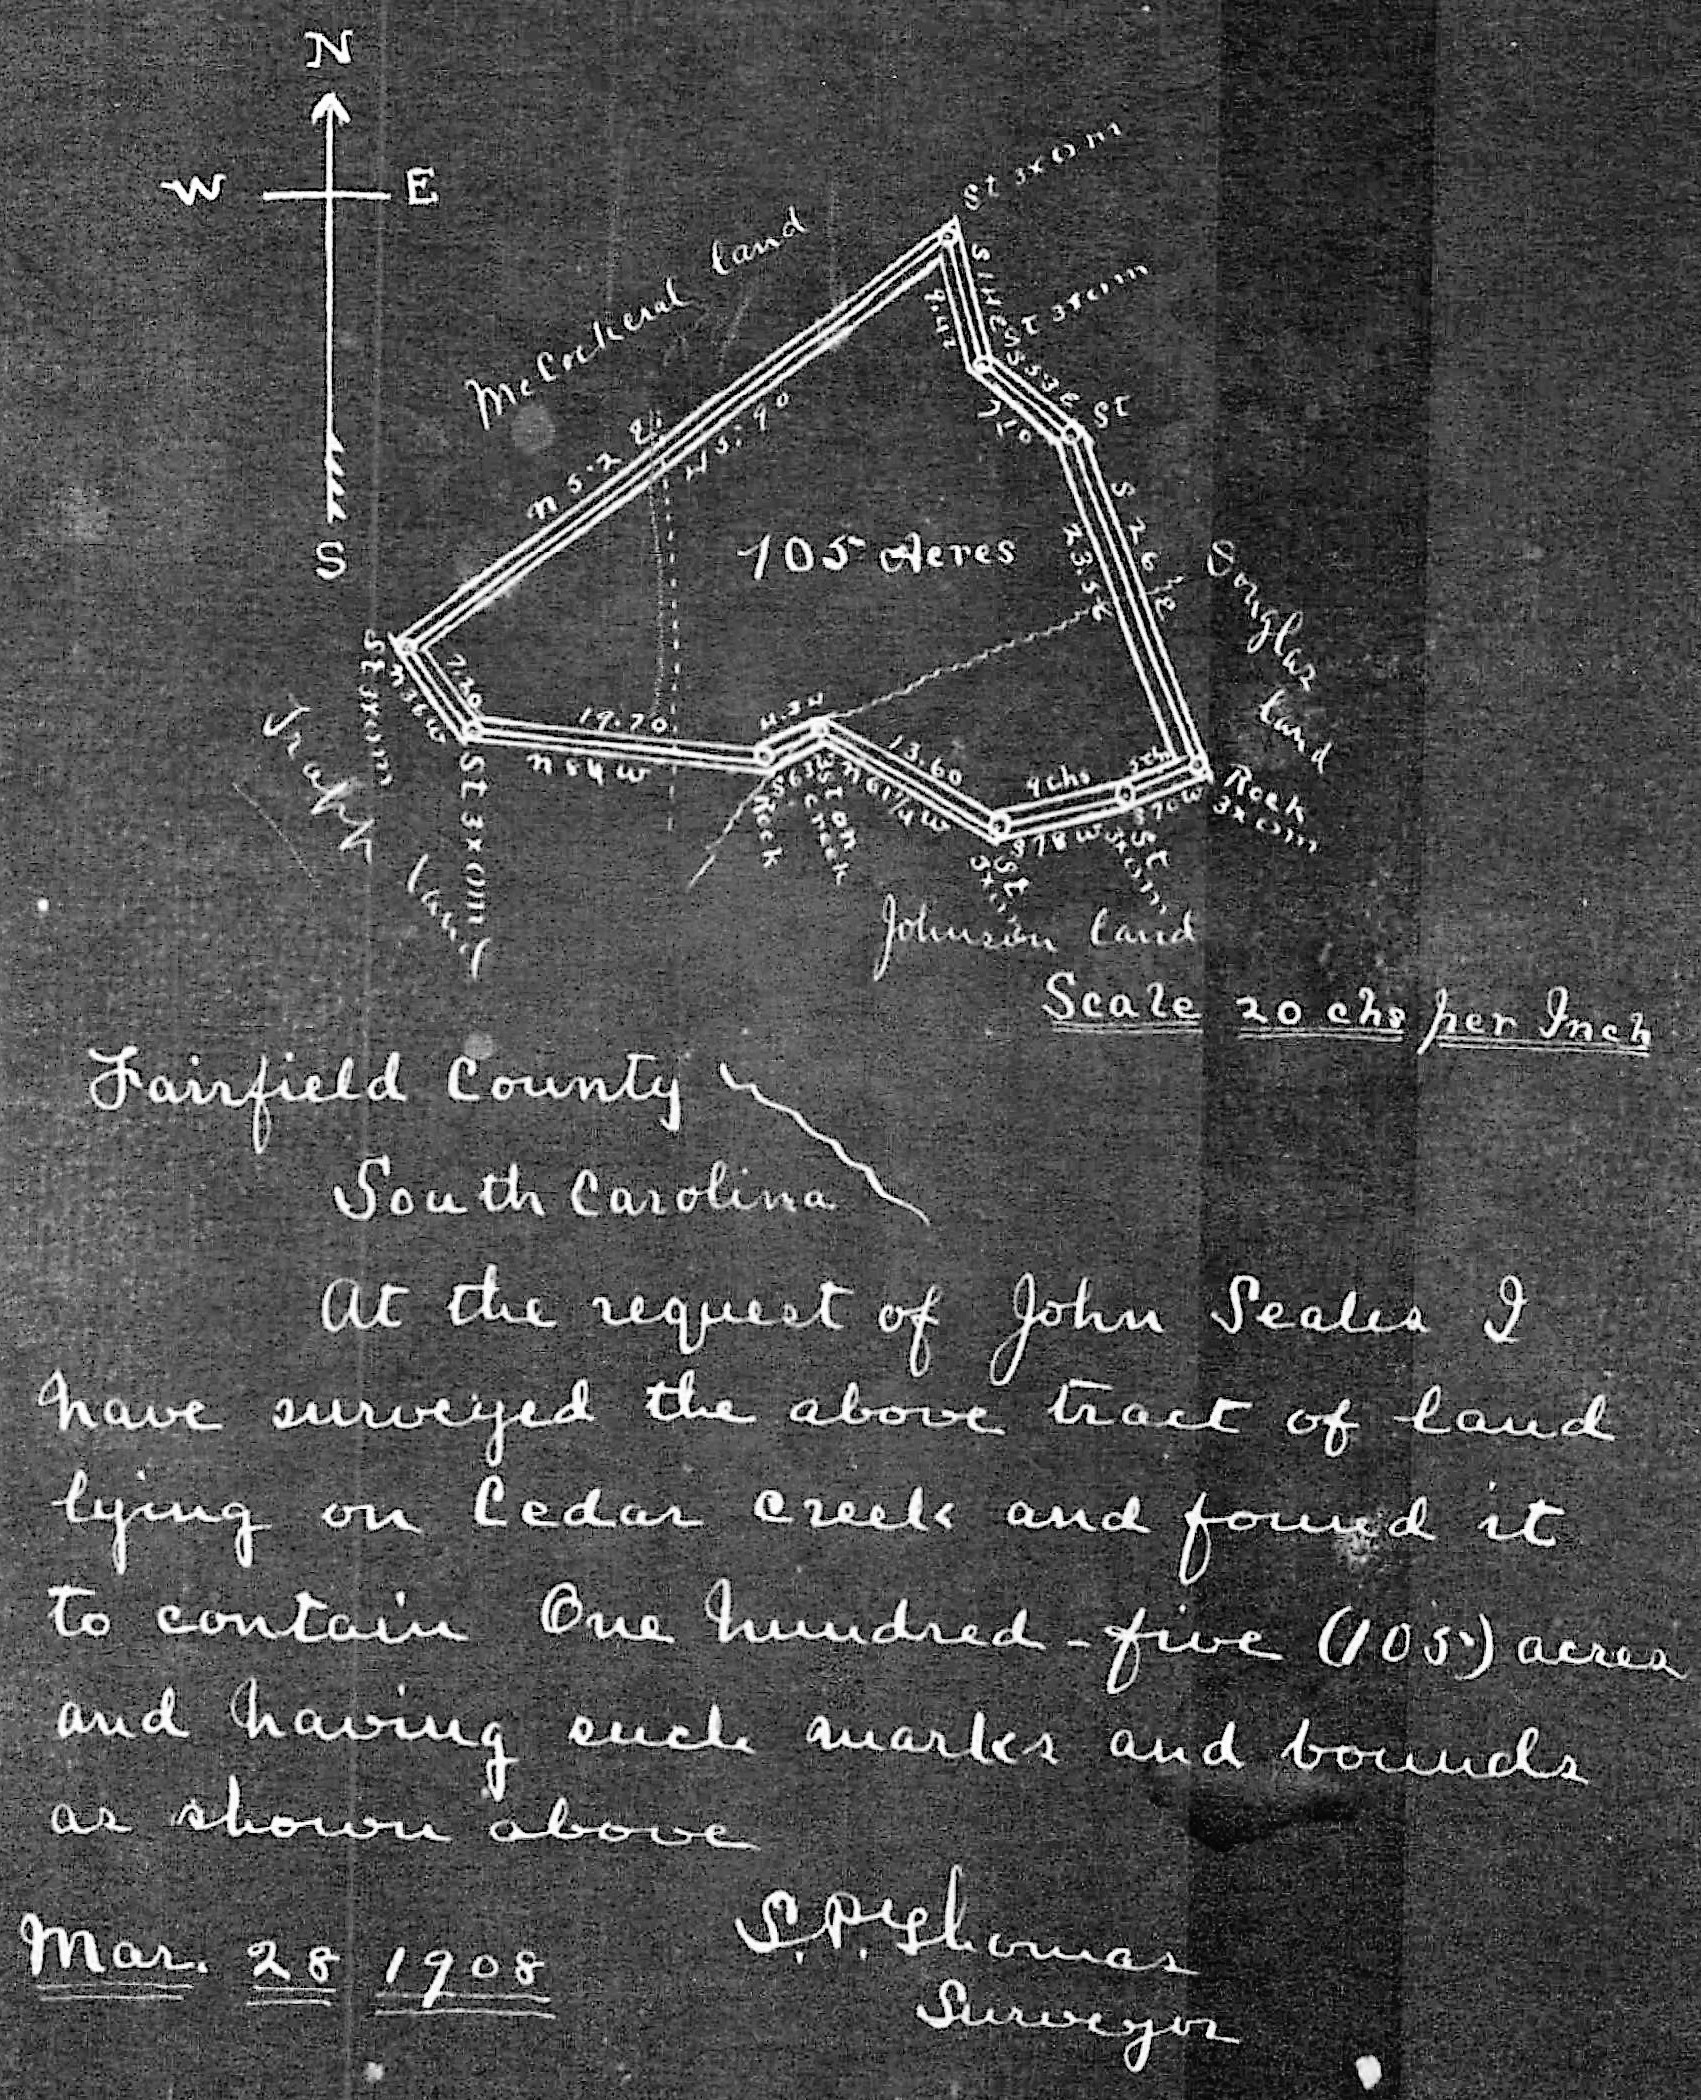 N
W E
S
St 3xom
McCockeral land
S 14 E
9.42
St 3xom
S 53 E
7.10
St
N 52 E
45.90
S 26 1/2 E
23.52
105 Acres
Douglas
land
St 3xom
N 36 W
7.20
19.70
N 84 W
4.34
S 63 W
13.60
N 61 1/4 W
9 chs
S 78 W
5 ch
S 70 W
Rock
3xom
St 3xom
Rock
Ston
creek
St
3xom
St
3xom
land
Johnson land
Scale 20 chs per Inch
Fairfield County
South Carolina
At the request of John Seales I
have surveyed the above tract of land
lying on Cedar Creek and found it
to contain One hundred-five (105) acres
and having such marks and bounds
as shown above
Mar. 28 1908
Thomas
Surveyor